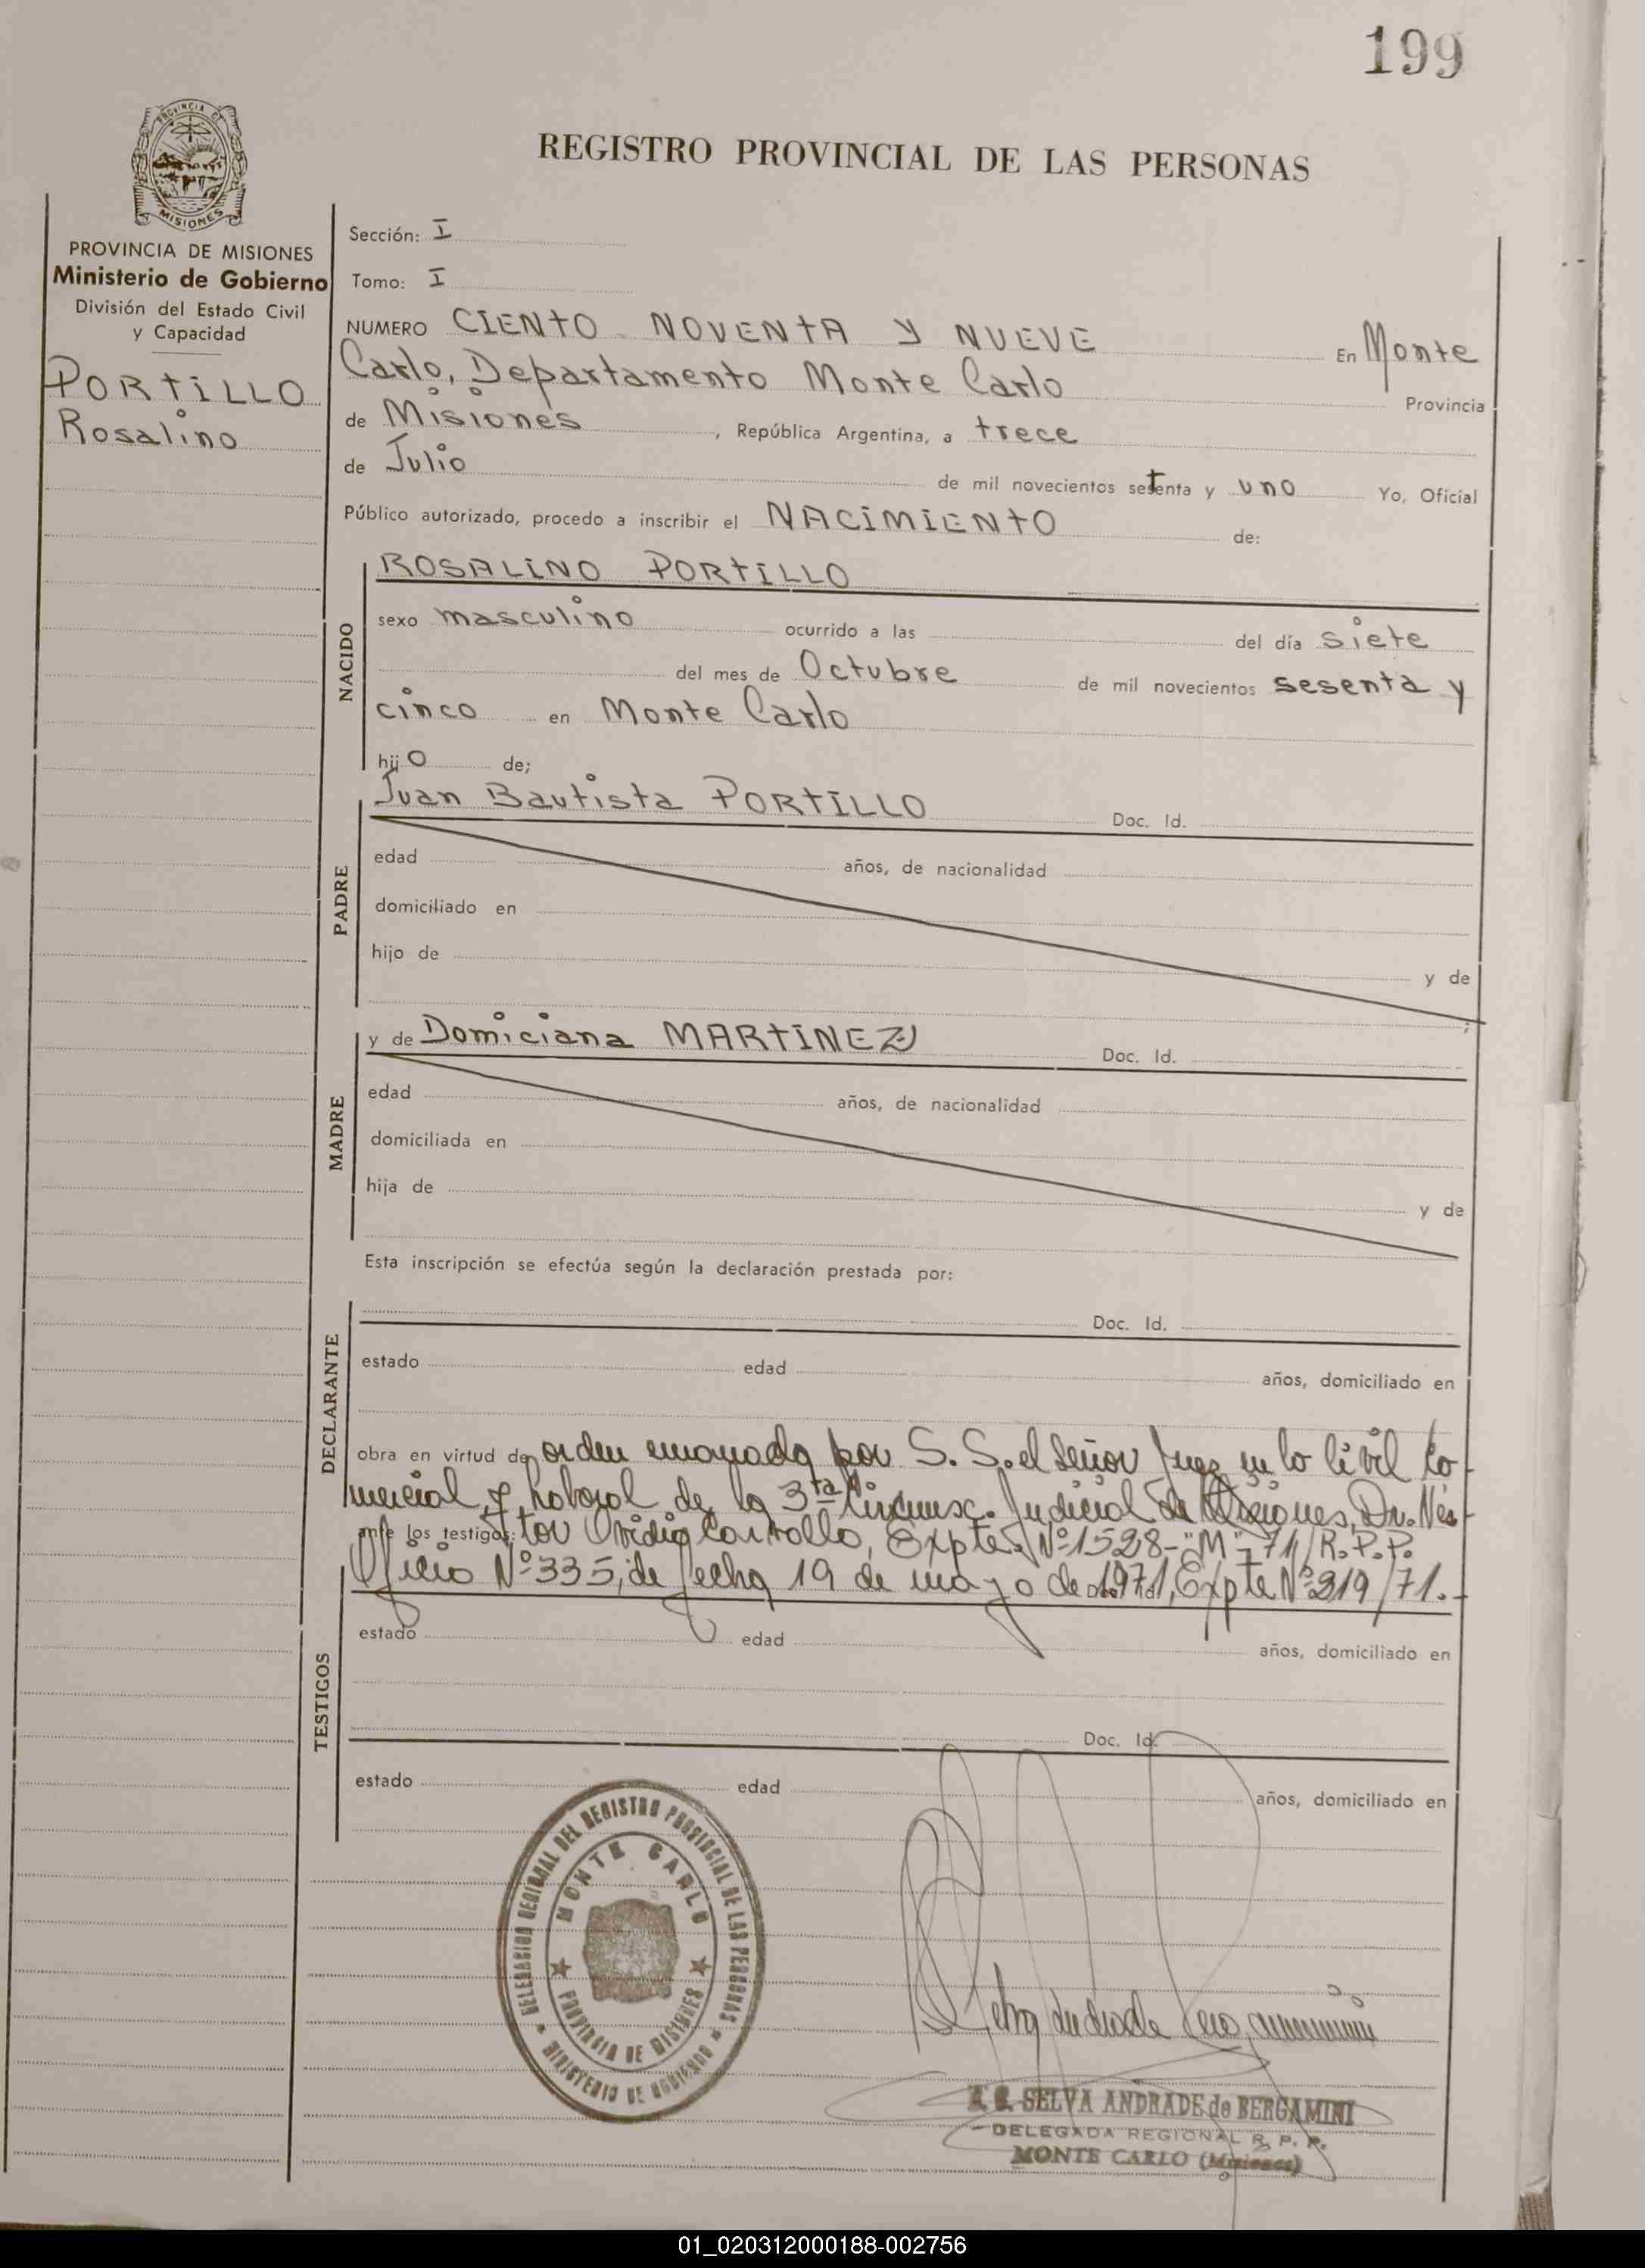 199
PROVINCIA DE
MISIONES
REGISTRO PROVINCIAL DE LAS PERSONAS
PROVINCIA DE MISIONES
Ministerio de Gobierno
División del Estado Civil
y Capacidad
PORTILLO
Rosalino
Sección: I
Tomo: I
NUMERO CIENTO NOVENTA Y NUEVE En Monte
Carlo, Departamento Monte Carlo Provincia
de Misiones, República Argentina, a trece
de Julio de mil novecientos setenta y uno Yo, Oficial
Público autorizado, procedo a inscribir el NACIMIENTO de:
NACIDO
ROSALINO PORTILLO
sexo masculino ocurrido a las del día siete
del mes de Octubre de mil novecientos sesenta y
cinco en Monte Carlo
hijo de;
PADRE
Juan Bautista PORTILLO Doc. Id.
edad años, de nacionalidad
domiciliado en
hijo de y de
;
MADRE
y de Domiciana MARTINEZ Doc. Id.
edad años, de nacionalidad
domiciliada en
hija de y de
Esta inscripción se efectúa según la declaración prestada por:
DECLARANTE
Doc. Id.
estado edad años, domiciliado en
obra en virtud de orden emanada por S. S. el Señor Juez en lo Civil Co-
mercial y Laboral de la 3ta Circunsc. Judicial de Misiones, Dr. Nés-
ante los testigos: tor Ovidio Carrollo, Expte. Nº 1528-"M"-71/R.P.P.
Oficio Nº 335, de fecha 19 de mayo de 1971, Expte Nº 219/71.-
TESTIGOS
estado edad años, domiciliado en
Doc. Id.
estado edad años, domiciliado en
DELEGACION REGIONAL DEL REGISTRO PROVINCIAL DE LAS PERSONAS
MONTE CARLO
PROVINCIA DE MISIONES
MINISTERIO DE GOBIERNO
SELVA ANDRADE de BERGAMINI
DELEGADA REGIONAL R. P. P.
MONTE CARLO (Misiones)
01_020312000188-002756